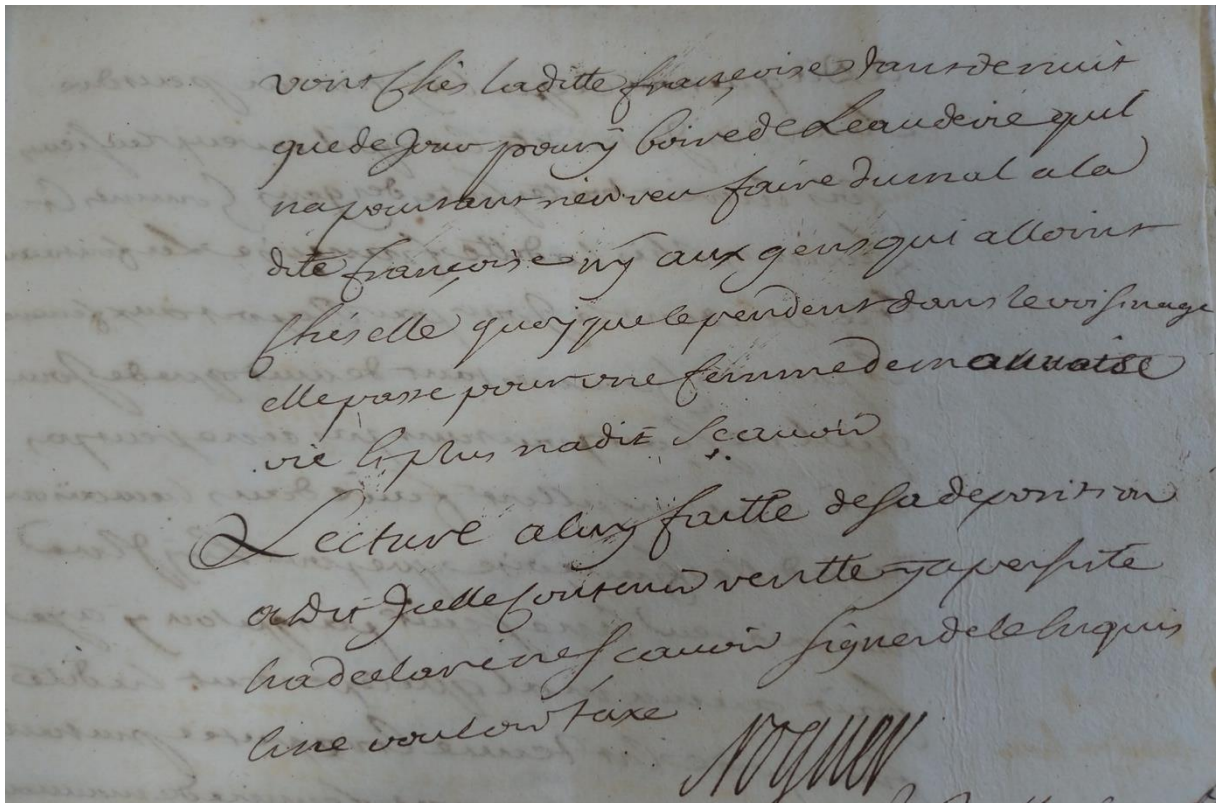 vont chés laditte françoise tant de nuit
que de Jour pour y boire de Leau de vie quil
na pourtant rien veu faire du mal a la
dite françoise ny aux gens qui alloint
chés elle quoy que cependent dans le voisinage
elle passe pour une femme de mauvaise
vie & plus na dit sçavoir
Lecture a luy faitte de sa deposition
a dit Icelle contenir veritte y a persisté
& a declaré ne scavoir signer de ce enquis
& ne vouloir taxe
Noguer